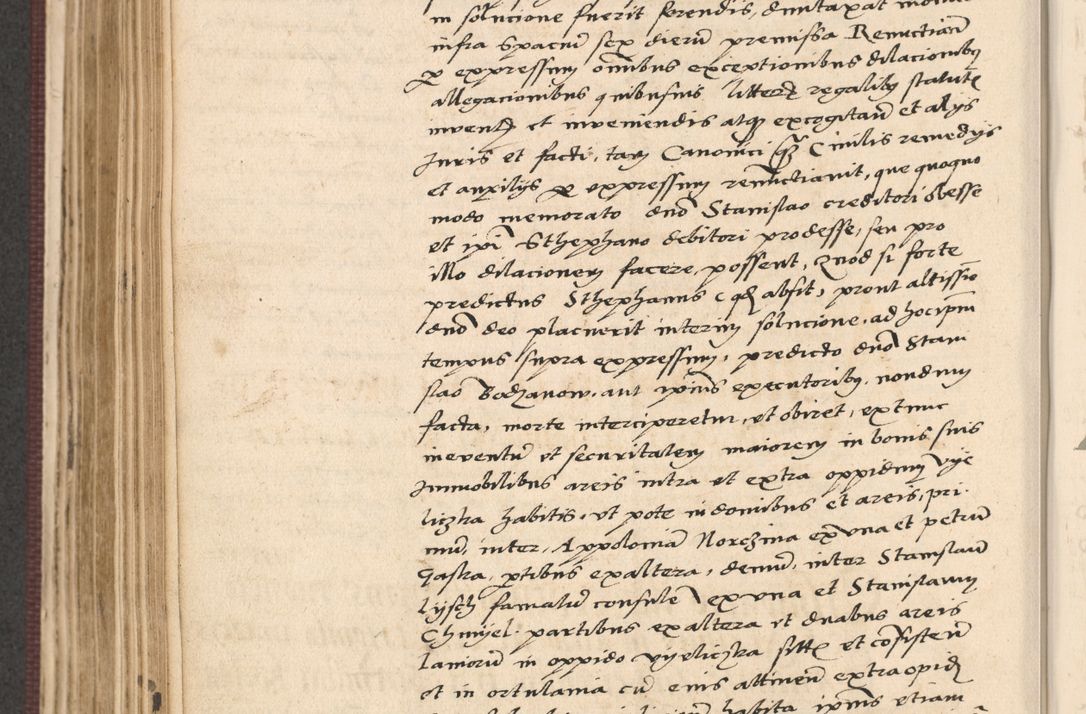 in solucione fuerit ferendis, duntaxat
infra spaciũ sex dierũ premissa Renũctiaũ
ꝑ expressum oĩbus exceptionibus dilacionibꝫ
allegacionibus quibusuis litterꝝ regaliũ statutꝭ
inventꝭ et inveniendis atqꝫ excogitatꝭ et alijs
Juris et facti, tam Canonici ꝙ̃ Ciuilis remedijs
et auxilijs ꝑ expressum renũctiauit, que quoquo
modo memorato dno Stanislao creditori obesse
et ip̃i Sthephano debitori prodesse, seu pro
illo dilacionem facere possent, Quod si forte
predictus Sthephanus qd absit, prout altissĩo
dno deo placuerit interim solucione, ad hoc ip̃m
tempus supra expressum, predicto dno Stani
slao Bodzanow. aut ip̃ius executoribꝫ, nondum
facta, morte interciperetur, et obiret, extunc
in eventũ et securitatem maiorem in bonis suis
Immobilibus areis intra et extra oppidum Vye
liczka habitis, ut pote in domibus et areis, pri
mũ, inter, Appoloniã Norczina ex una et petrũ
Gaska, ꝑtibus ex altera, demũ, inter Stanislaũ
Lysch famatũ consulẽ ex una et Stanislaum
Chmyel partibus ex altera et duabus areis
laniorũ in oppido vyeliczka sittꝭ et consistenꝭ
et in ortulania cũ eius attinenꝭ extra opidꝭ
habita ip̃ius etiam